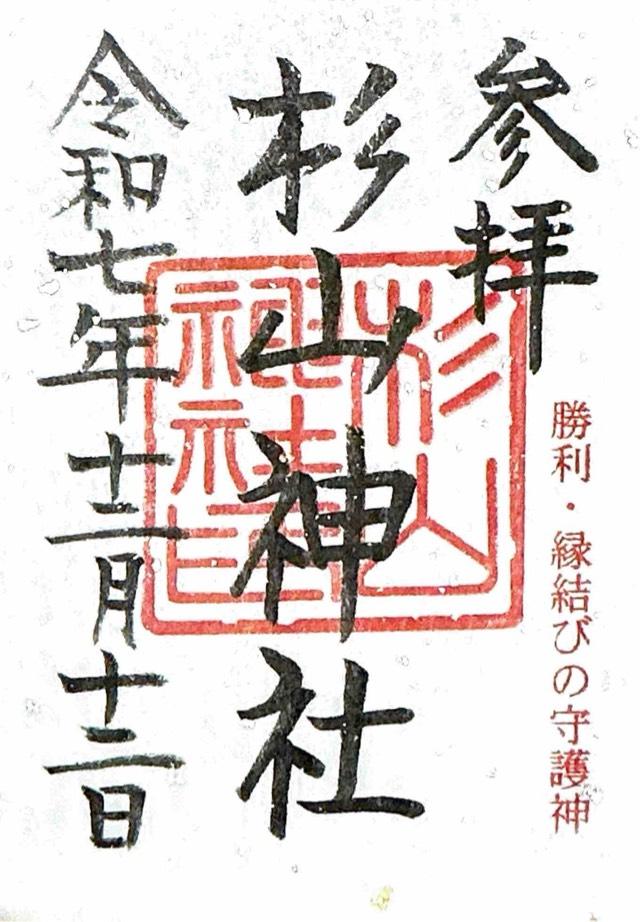 参拝
勝利・縁結びの守護神
杉山神社
杉山
神社
令和七年十二月十二日